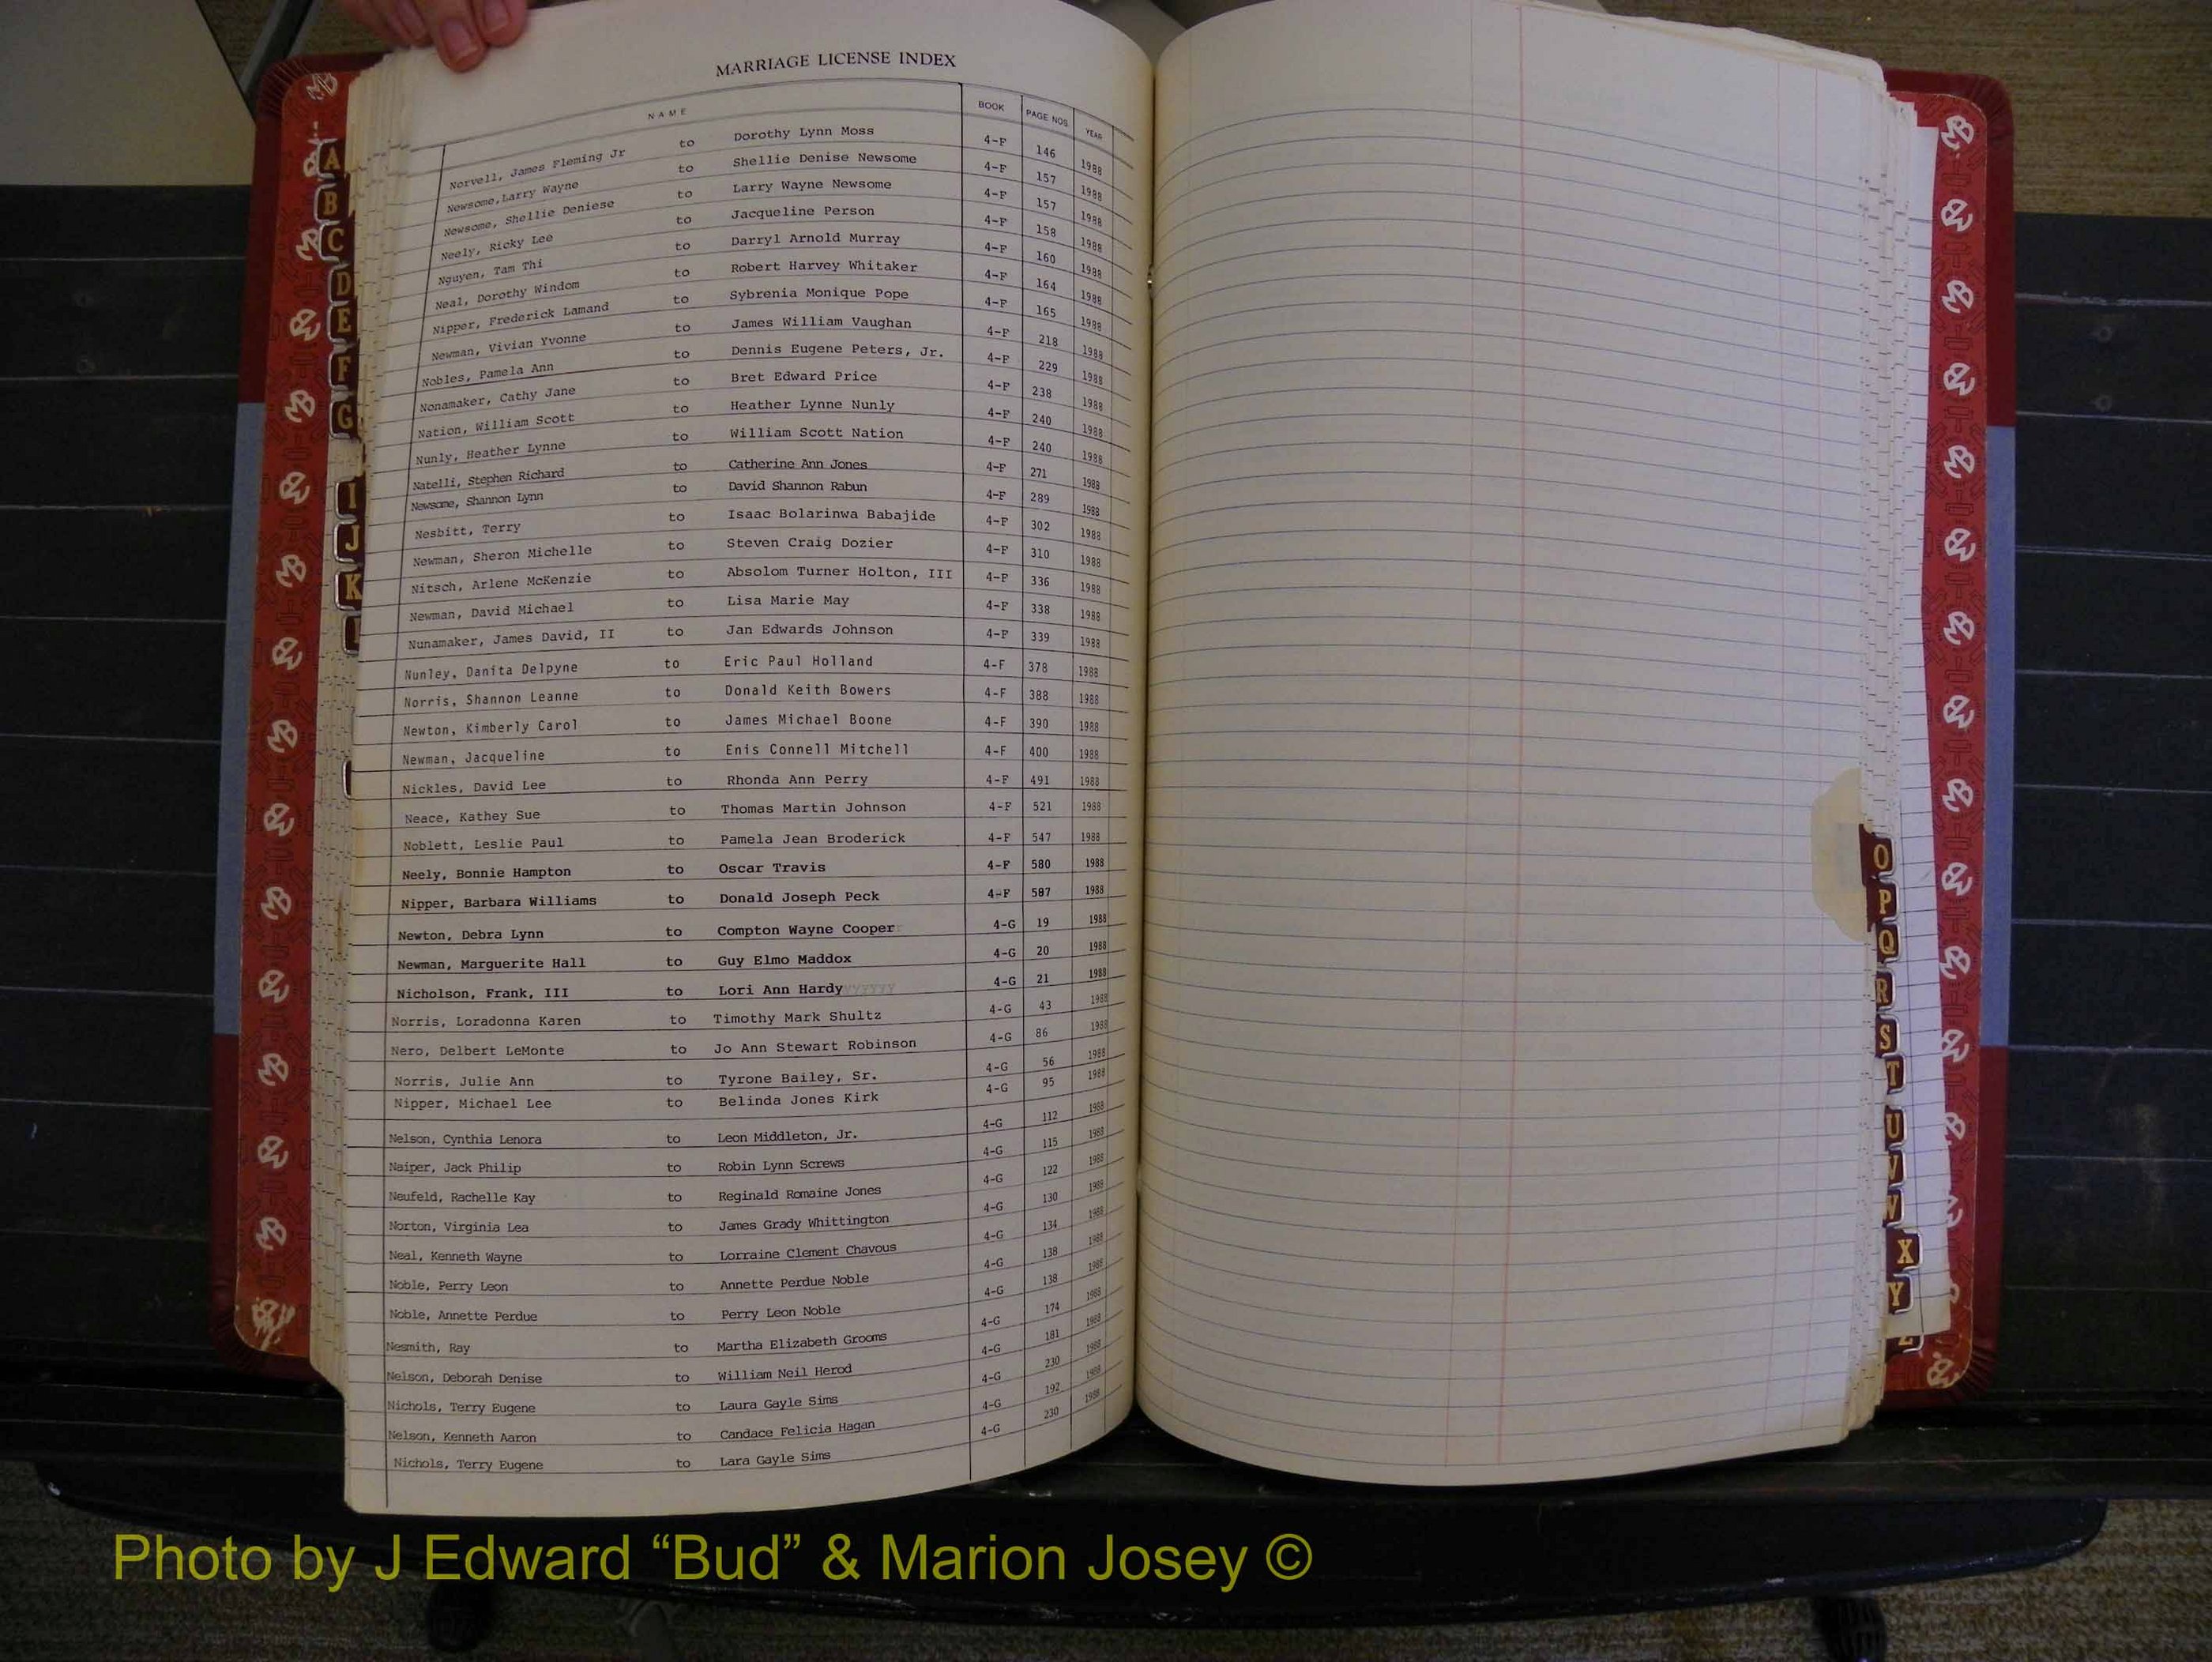 MARRIAGE LICENSE INDEX
NAME BOOK PAGE NOS. YEAR
Norvell, James Fleming Jr to Dorothy Lynn Moss 4-F 146 1988
Newsome, Larry Wayne to Shellie Denise Newsome 4-F 157 1988
Newsome, Shellie Deniese to Larry Wayne Newsome 4-F 157 1988
Neely, Ricky Lee to Jacqueline Person 4-F 158 1988
Nguyen, Tam Thi to Darryl Arnold Murray 4-F 160 1988
Neal, Dorothy Windom to Robert Harvey Whitaker 4-F 164 1988
Nipper, Frederick Lamand to Sybrenia Monique Pope 4-F 165 1988
Newman, Vivian Yvonne to James William Vaughan 4-F 218 1988
Nobles, Pamela Ann to Dennis Eugene Peters, Jr. 4-F 229 1988
Nonamaker, Cathy Jane to Bret Edward Price 4-F 238 1988
Nation, William Scott to Heather Lynne Nunly 4-F 240 1988
Nunly, Heather Lynne to William Scott Nation 4-F 240 1988
Natelli, Stephen Richard to Catherine Ann Jones 4-F 271 1988
Newsome, Shannon Lynn to David Shannon Rabun 4-F 289 1988
Nesbitt, Terry to Isaac Bolarinwa Babajide 4-F 302 1988
Newman, Sheron Michelle to Steven Craig Dozier 4-F 310 1988
Nitsch, Arlene McKenzie to Absolom Turner Holton, III 4-F 336 1988
Newman, David Michael to Lisa Marie May 4-F 338 1988
Nunamaker, James David, II to Jan Edwards Johnson 4-F 339 1988
Nunley, Danita Delpyne to Eric Paul Holland 4-F 378 1988
Norris, Shannon Leanne to Donald Keith Bowers 4-F 388 1988
Newton, Kimberly Carol to James Michael Boone 4-F 390 1988
Newman, Jacqueline to Enis Connell Mitchell 4-F 400 1988
Nickles, David Lee to Rhonda Ann Perry 4-F 491 1988
Neace, Kathey Sue to Thomas Martin Johnson 4-F 521 1988
Noblett, Leslie Paul to Pamela Jean Broderick 4-F 547 1988
Neely, Bonnie Hampton to Oscar Travis 4-F 580 1988
Nipper, Barbara Williams to Donald Joseph Peck 4-F 587 1988
Newton, Debra Lynn to Compton Wayne Cooper 4-G 19 1988
Newman, Marguerite Hall to Guy Elmo Maddox 4-G 20 1988
Nicholson, Frank, III to Lori Ann Hardy 4-G 21 1988
Norris, Loradonna Karen to Timothy Mark Shultz 4-G 43 1988
Nero, Delbert LeMonte to Jo Ann Stewart Robinson 4-G 86 1988
Norris, Julie Ann to Tyrone Bailey, Sr. 4-G 56 1988
Nipper, Michael Lee to Belinda Jones Kirk 4-G 95 1988
Nelson, Cynthia Lenora to Leon Middleton, Jr. 4-G 112 1988
Naiper, Jack Philip to Robin Lynn Screws 4-G 115 1988
Neufeld, Rachelle Kay to Reginald Romaine Jones 4-G 122 1988
Norton, Virginia Lea to James Grady Whittington 4-G 130 1988
Neal, Kenneth Wayne to Lorraine Clement Chavous 4-G 134 1988
Noble, Perry Leon to Annette Perdue Noble 4-G 138 1988
Noble, Annette Perdue to Perry Leon Noble 4-G 138 1988
Nesmith, Ray to Martha Elizabeth Grooms 4-G 174 1988
Nelson, Deborah Denise to William Neil Herod 4-G 181 1988
Nichols, Terry Eugene to Laura Gayle Sims 4-G 230 1988
Nelson, Kenneth Aaron to Candace Felicia Hagan 4-G 192 1988
Nichols, Terry Eugene to Lara Gayle Sims 4-G 230 1988
A
B
C
D
E
F
G
I
J
K
O
P
Q
R
S
T
U
V
W
X
Y
Z
Photo by J Edward “Bud” & Marion Josey ©